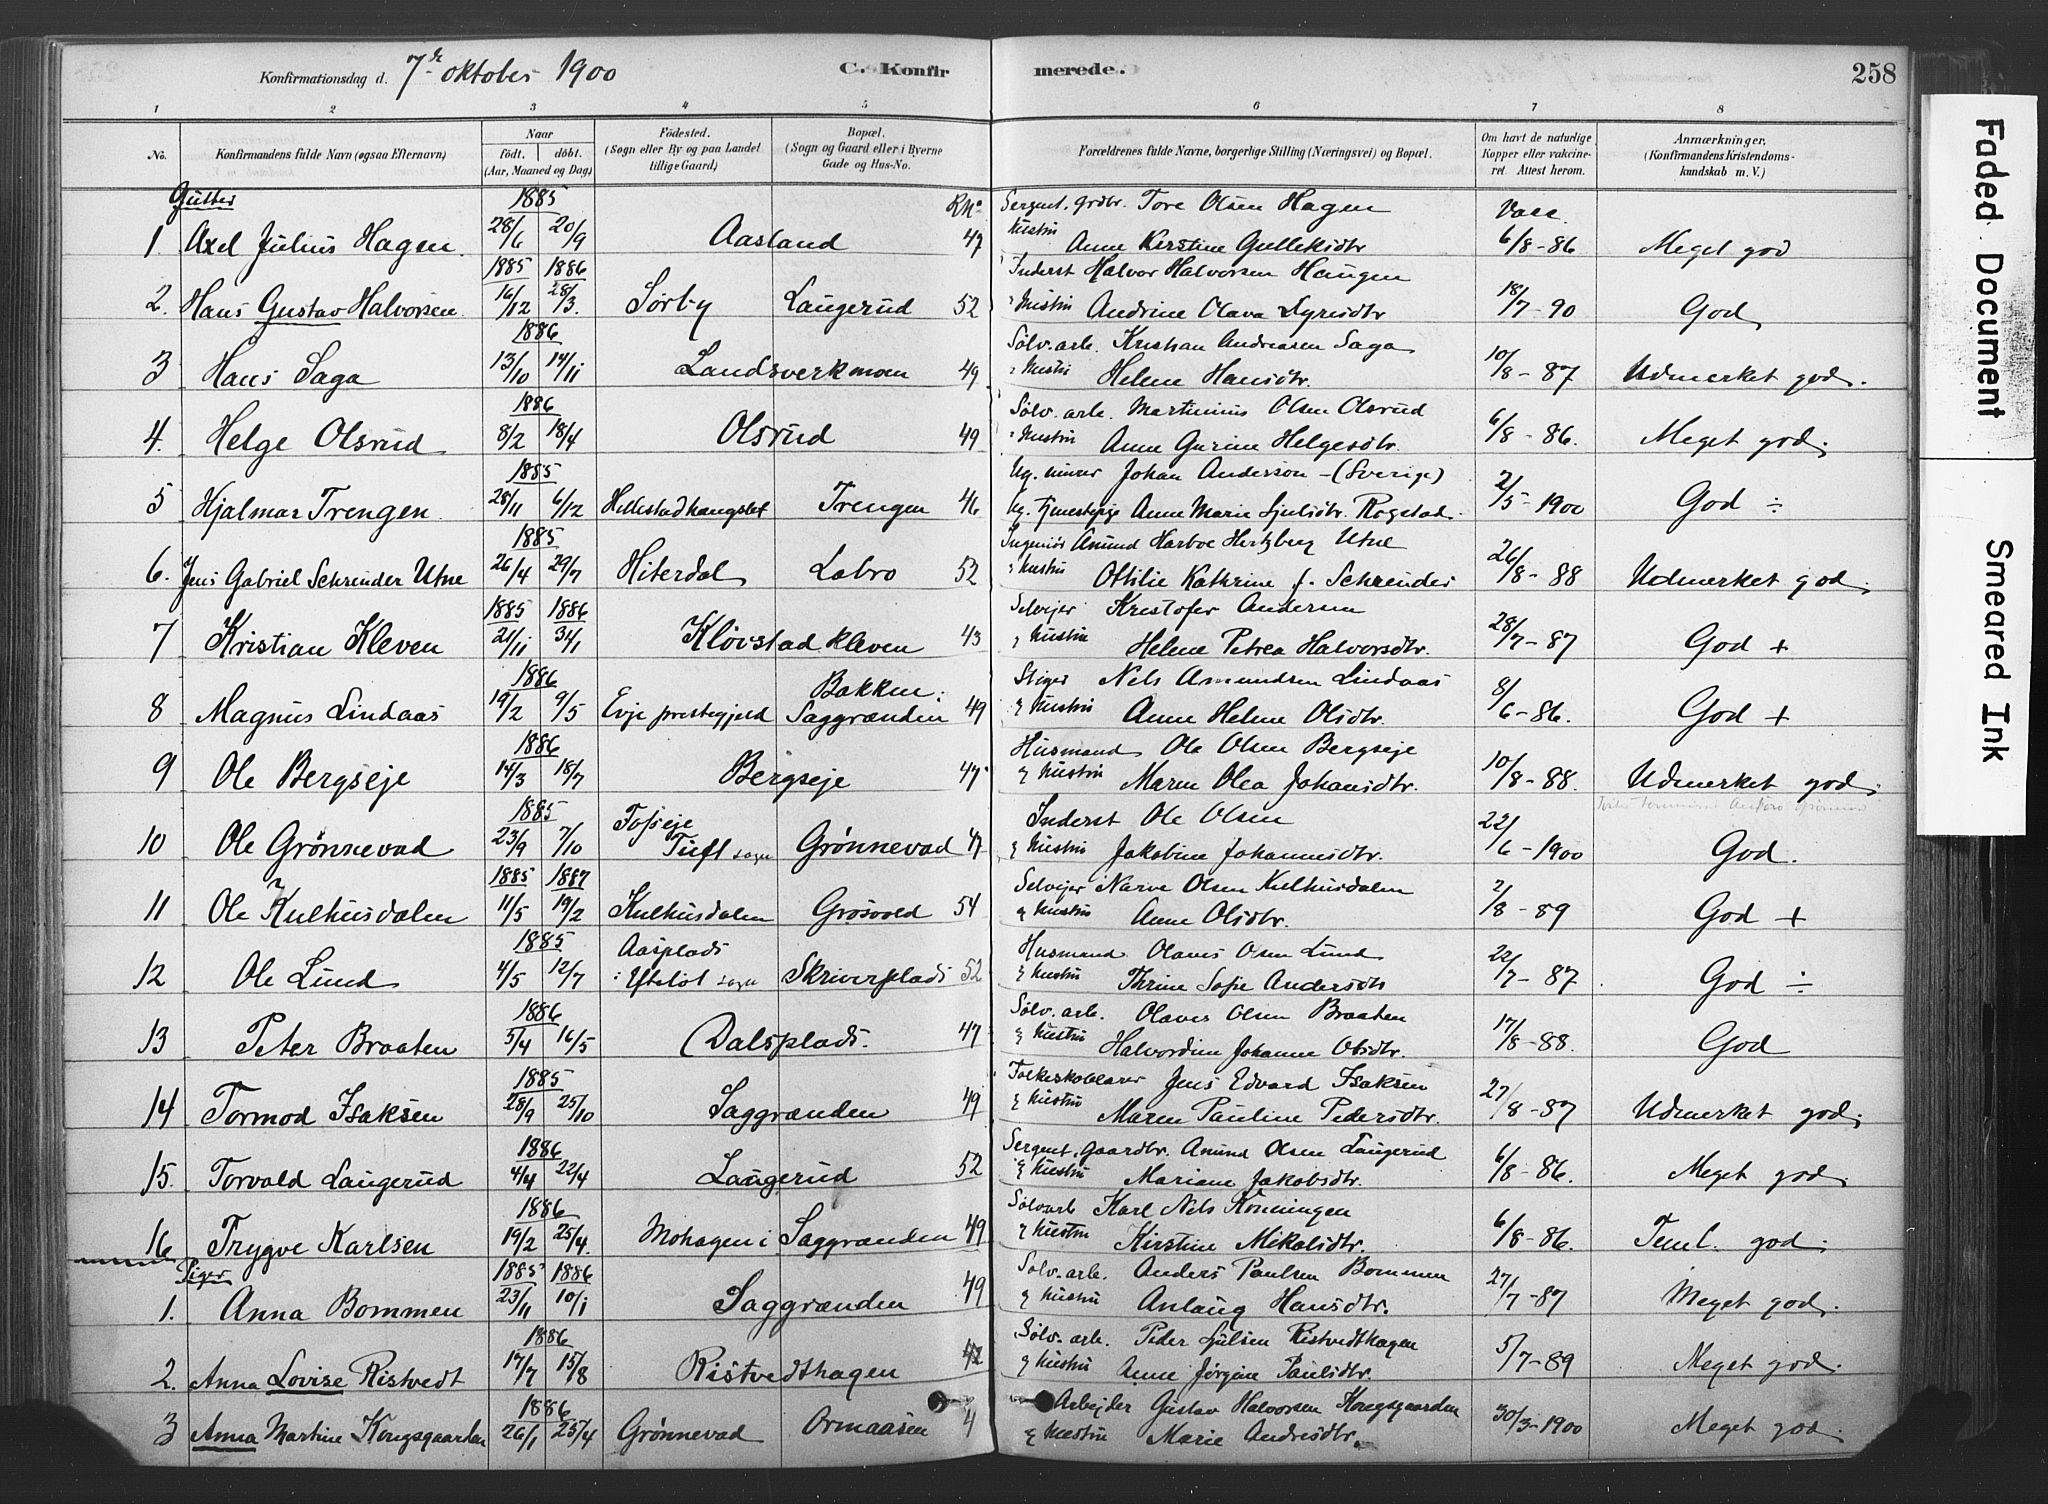 Konfirmationsdag d. 7de oktober 1900 C. Konfirmerede. 258
1 2 3 4 5 6 7 8
No. Konfirmandens fulde Navn (ogsaa Efternavn) Naar født. døbt. (Aar, Maaned og Dag) Fødested. (Sogn eller By og paa Landet tillige Gaard) Bopæl. (Sogn og Gaard eller i Byerne Gade og Hus-No. Forældrenes fulde Navne, borgerlige Stilling (Næringsvei) og Bopæl. Om havt de naturlige Kopper eller vakcineret. Attest herom. Anmærkninger, (Konfirmandens Kristendomskundskab m. V.)
Gutter 1885 Sergent, grdbr. Tore Olsen Hagen Vacc.
1. Axel Julius Hagen. 28/6 20/9 Aasland 47 Hustru Anne Kirstine Gulleksdtr 6/8-86 Meget god
1885 1886 Inderst Halvor Halvorsen Haugen
2. Hans Gustav Halvorsen. 16/12 28/3. Sørby Laugerud 52 Hustru Andrine Olava 18/7-90 God
1886 Sølv. arb. Kristian Andreasen Saga
3 Hans Saga 13/10 14/11 Landsverkmoen 49 Hustru Helene Hansdtr. 10/8-87 Udmerket god.
1886 Sølv. arb. Martinius Olsen Olsrud
4. Helge Olsrud 8/2 18/4 Olsrud 49 Hustru Anne Gurine Helgesdtr. 6/8-86. Meget god.
1885 Ug. murer Johan Anderson - (Sverige)
5 Hjalmar Trengen 28/11 6/12 Trengen 46 Ug. Tjenestepige Anne Marie Rogstad. 2/5-1900 God ÷
1885 Ingeniør Amund Harboe Hertzberg Utne
6. Jens Gabriel Schreuder Utne 26/4 29/7 Hiterdal Labro 52 Hustru Ottilie Kathrine f. Schreuder 26/8-88 Udmerket god.
1885 1886 Selvejer Kristofer Andersen
7 Kristian Kleven 21/11 31/1 Kløvstad kleven 43 & Hustru Helene Petrea Halvorsdtr. 28/7-87 God +
1886 Bakken i Stiger Nils Amundsen Lindaas
8 Magnus Lindaas 19/2 9/5 Evje prestegjeld Saggrænden 49 & Hustru Anne Helene Olsdtr. 8/6-86. God +
1886 Husmand Ole Olsen Bergseje
9 Ole Bergseje 14/3 18/7 Bergseje 47 & Hustru Maren Olea Johansdtr. 10/8-88. Udmerket god.
1885 Inderst Ole Olsen
10 Ole Grønnevad 23/9 7/10 Tuft sogn Grønnevad 47 & Hustru Jakobine Johannesdtr. 22/6-1900 God.
1885 1887 Selvejer Narve Olsen Kulhusdalen
11 Ole Kulhusdalen 11/5 19/2 Kulhusdalen Grosvold 54 & Hustru Anne Olsdtr. 2/8-89 God +
1885 Aasplads Husmand Olaves Olsen Lund
12 Ole Lund 4/5 12/7 i Efteløt sogn Skriverplads 52 & Hustru Thrine Sofie Andersdtr 22/7-87 God ÷
1886 Sølv. arb. Olaves Olsen Braaten
13 Peter Braaten 5/4 16/5 Dalsplads. 47 & Hustru Halvordine Johanne Olsdtr. 17/8-88. God
1885 Folkeskolelærer Jens Edvard Isaksen
14 Tormod Isaksen 28/9 25/10 Saggrænden 49 & Hustru Maren Pauline Pedersdtr. 27/8-87 Udmerket god.
1886 Sergent, Gaardbr. Amund Olsen Laugerud
15. Torvald Laugerud 4/4 22/4 Laugerud 52 & Hustru Mariane Jakobsdtr. 6/8-86. Meget god.
1886 Sølvarb Karl Nils Konningen
16 Trygve Karlsen 19/2 25/4. Mohagen i Saggrænden 49 & Hustru Kirstine Mikalsdtr. 6/8-86. Teml. god.
Piger 1885 1886 Sølv. arb. Anders Paulsen Bommen
1. Anna Bommen 23/11 10/1 Saggrænden 49 & Hustru Anlaug Hansdtr. 27/7-87 Meget god.
1886 Sølv. arb. Peder Ristvedthagen
2. Anna Lovise Ristvedt 17/7 15/8 Ristvedthagen 42 & Hustru Anne Jørgine Paulsdtr. 5/7-89 Meget god.
1886 Arbejder Gustav Halvorsen Kongsgaarden
3 Anna Martine Kongsgaarden 26/1 25/4 Grønnevad Ormaasen 4 & Hustru Marie Andresdtr. 30/3-1900 Meget god.
Faded Document
Smeared Ink